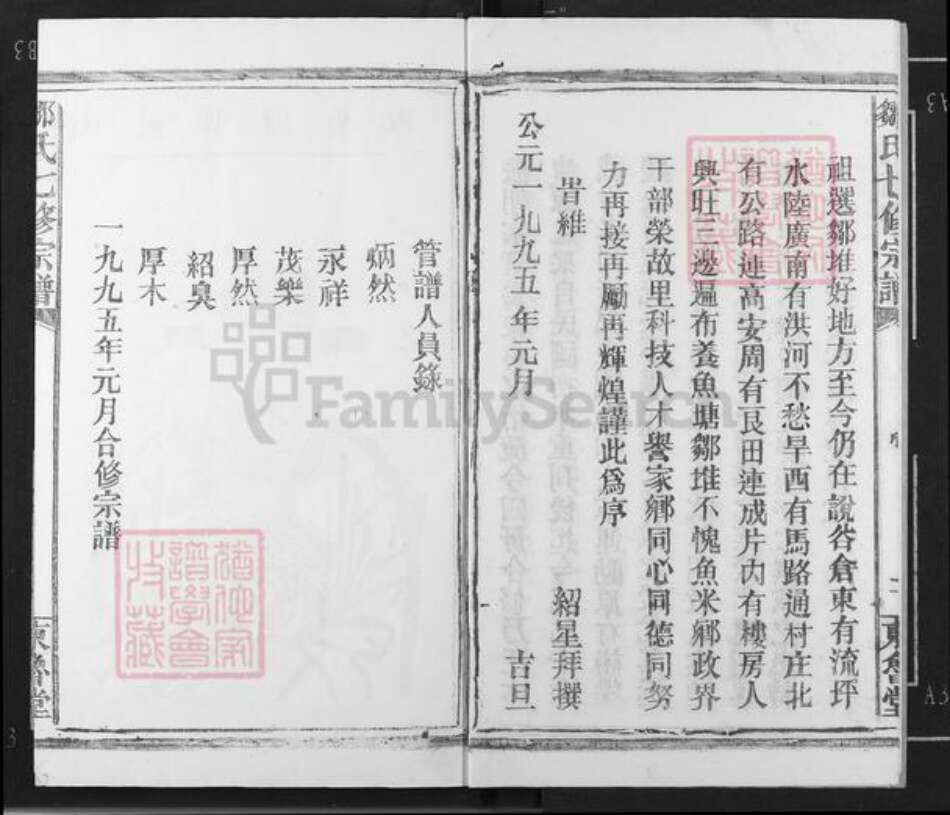 鄒氏七修宗譜
祖選鄒堆好地方至今仍在說谷倉東有流坪
水陸廣南有淇河不愁旱西有馬路通村庄北
有公路連高安周有良田連成片內有樓房人
興旺三邊遍布養魚塘鄒堆不愧魚米鄉政界
干部榮故里科技人才譽家鄉同心同德同努
力再接再勵再輝煌謹此為序
旹維 紹星拜撰
公元一九九五年元月 吉旦
東魯堂
管譜人員錄
炳然
永祥
茂樂
厚然
紹臭
厚木
一九九五年元月合修宗譜
鄒氏七修宗譜
東魯堂
FamilySearch
譜學會
收藏
A3
A3
B3
3